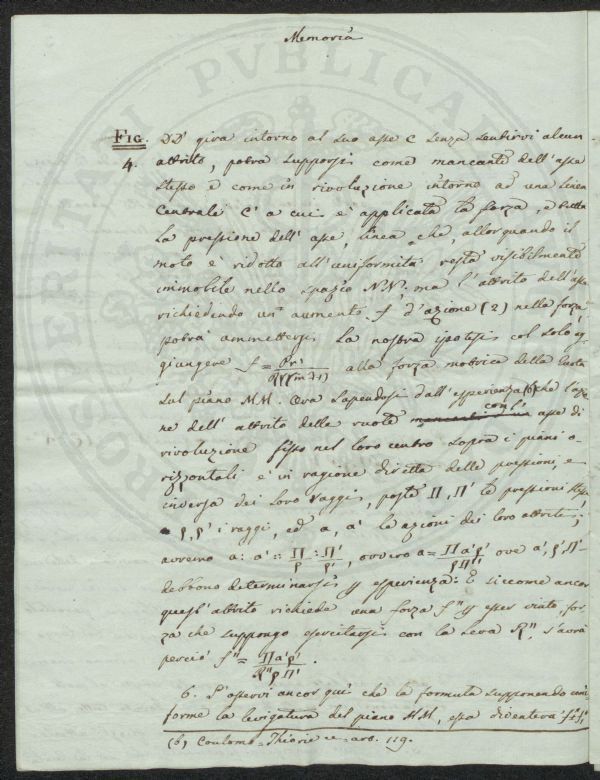 Memoria
FIG. DD' gira intorno al suo asse C senza sentirvi alcun
4. attrito, potrà supporsi come mancante dell'asse
stesso e come in rivoluzione intorno ad una linea
centrale C' a cui è applicata la forza, e tutta
la pressione dell'asse, linea che, allorquando il
moto è ridotto all'uniformità resta visibilmente
immobile nello spazio NN'; ma l'attrito dell'asse
richiedendo un aumento f' d'azione (2) nella forza,
potrà ammettersi la nostra ipotesi col solo ag
giungere f = alla forza motrice della ruota
sul piano MM. Ora sapendosi dall'esperienza (b) che l'azio
ne dell'attrito delle ruote con l' asse di
rivoluzione fisso nel loro centro sopra i piani o-
rizzontali è in ragione diretta delle pressioni, e
inversa dei loro raggi, poste Π, Π' le pressioni stesse,
ρ, ρ' i raggi, ed a, a' le azioni dei loro attriti;
avremo a: a' :: Π/ρ : Π'/ρ', ovvero a = Πa'ρ'/ρΠ' ove a', ρ', Π'
debbono determinarsi esperienza: E siccome ancor
quest'attrito richiede una forza f'' esser vinto, for
za che suppongo esercitarsi con la leva R'' s'avrà
perciò f'' = Πa'ρ'/R''ρΠ'.
6. S'osservi ancor qui che la formula supponendo uni
forme la levigatura del piano MM, essa diventerà
(b) Coulomb = Théorie art. 119.